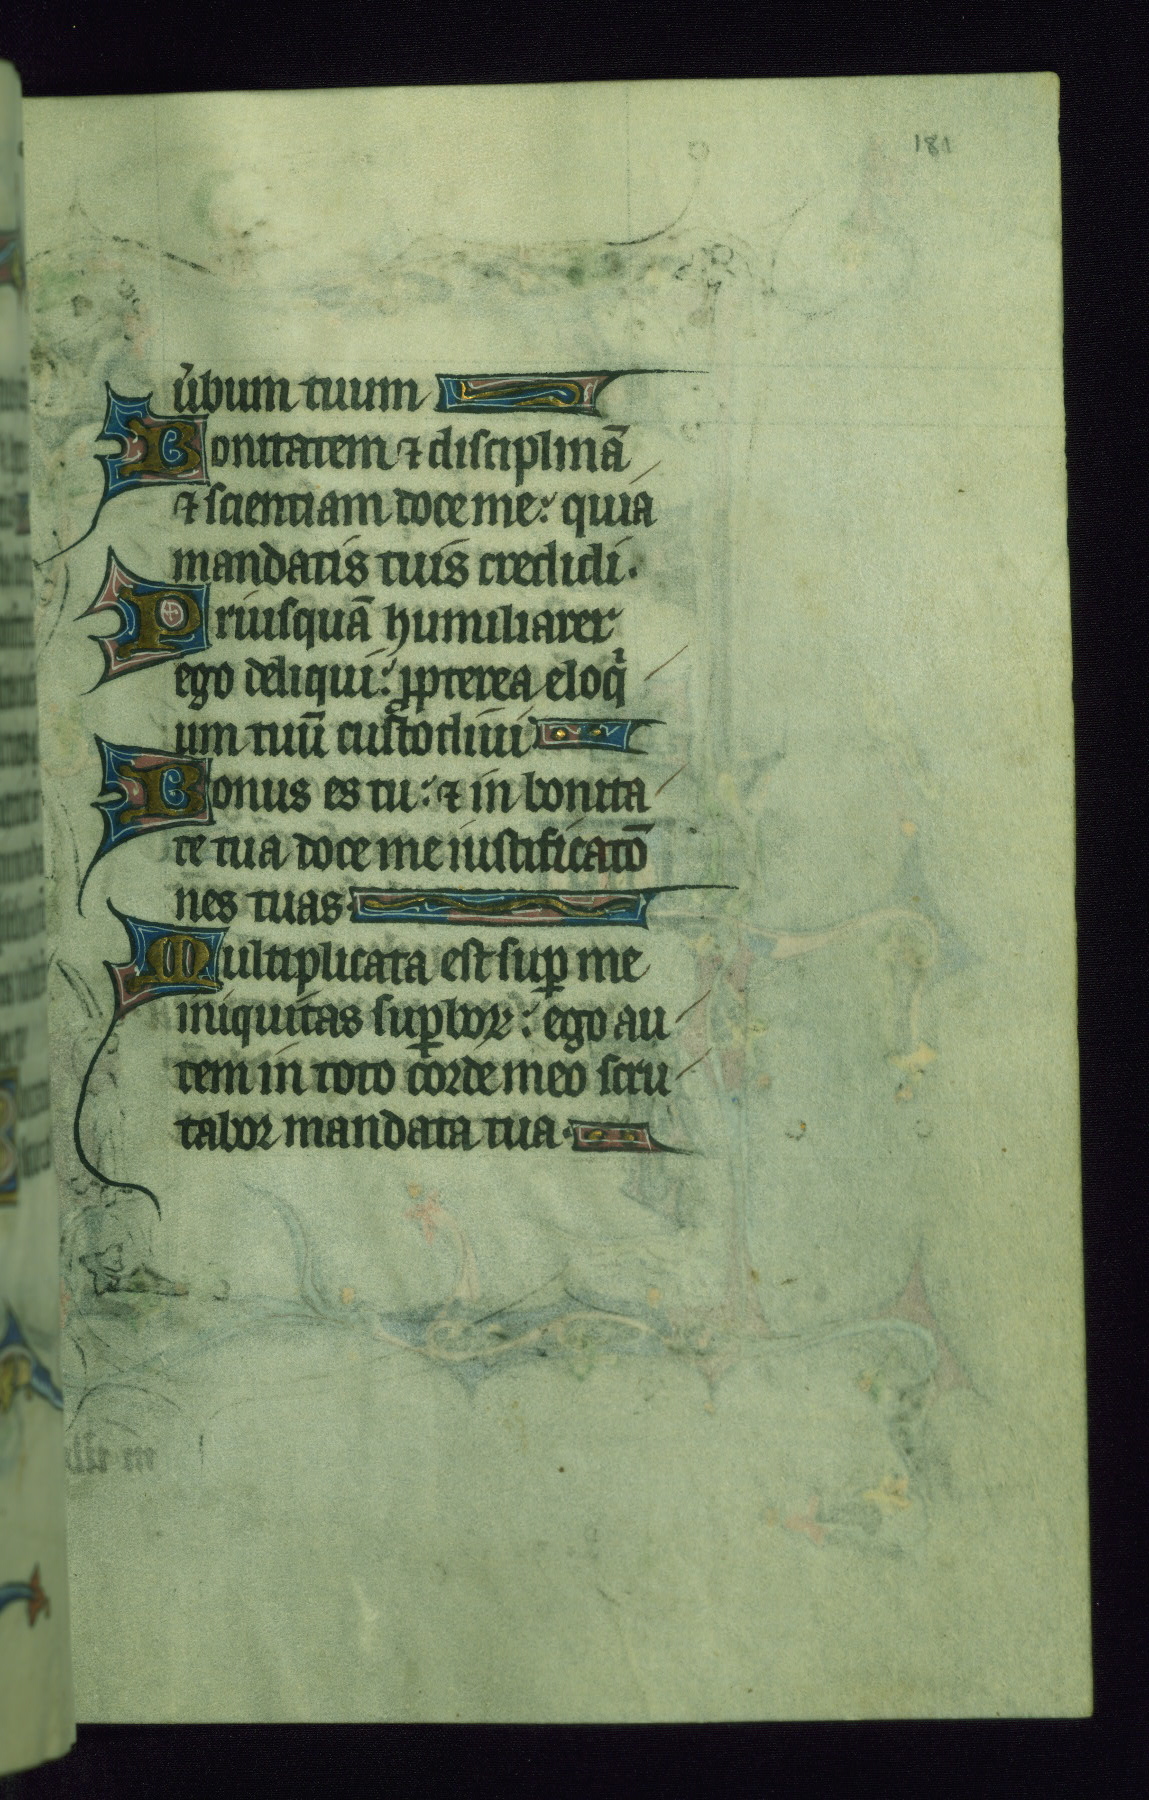 181
ūbum tuum
Bonitatem ⁊ disciplinā
⁊ scientiam doce me: quia
mandatis tuis credidi.
Priusquā humiliarer
ego deliqui: ꝓpterea eloqͥ
um tuū custodiui
Bonus es tu: ⁊ in bonita
te tua doce me iustificatō
nes tuas.
Multiplicata est suꝑ me
iniquitas suꝑboꝝ: ego au
tem in toto corde meo scru
tabor mandata tua.